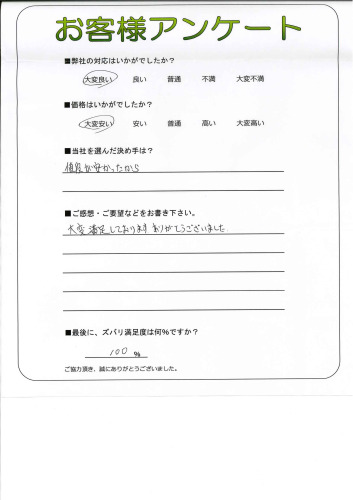 お客様アンケート
■弊社の対応はいかがでしたか?
大変良い 良い 普通 不満 大変不満
■価格はいかがでしたか?
大変安い 安い 普通 高い 大変高い
■当社を選んだ決め手は?
値段が安かったから
■ご感想・ご要望などをお書き下さい。
大変満足しております ありがとうございました。
■最後に、ズバリ満足度は何%ですか?
100 %
ご協力頂き、誠にありがとうございました。